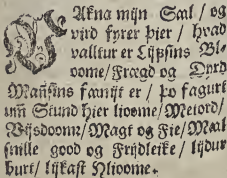 VAkna mijn Sæl / og
vird fyrer þier / hvad
valltur er Lijfsins Bl-
oome/Frægd og Dyrd
Man̄sins fæmijt er / þo fagurt
um̄ Stund hier lioome/Meiord/
Vijsdoom/Magt og Fie/Mæl
snille good og Frijdleike / lijdur
burt/ lijkast Hlioome.